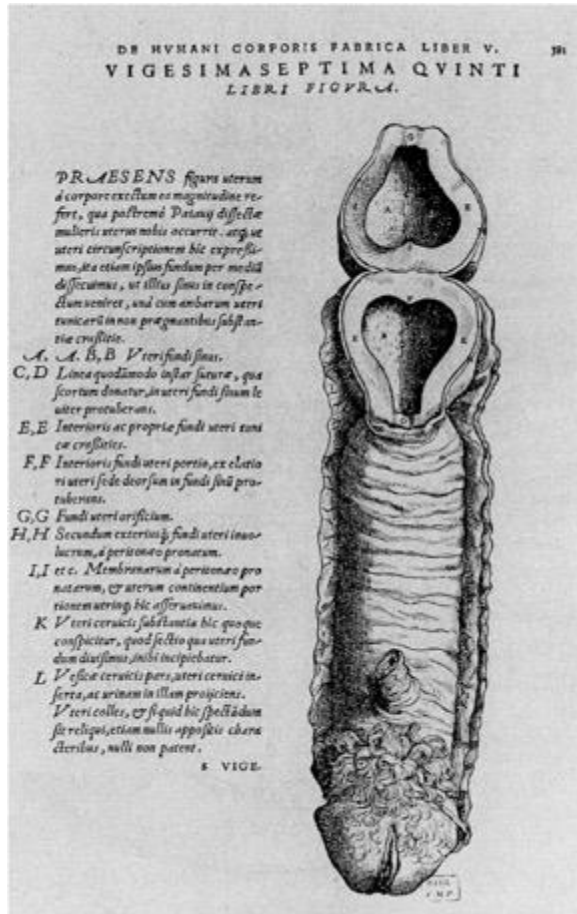 DE HVMANI CORPORIS FABRICA LIBER V. 381
VIGESIMASEPTIMA QVINTI
LIBRI FIGVRA.
PRAESENS figura uterum
à corpore exectum ea magnitudine re-
fert, qua postremò Patauij dissectæ
mulieris uterus nobis occurrit. atq; ut
uteri circunscriptionem hic expressi-
mus, ita etiam ipsius fundum per mediũ
dissecuimus, ut illius sinus in conspe-
ctum ueniret, unà cum ambarum uteri
tunicarũ in non prægnantibus substan-
tiæ crassitie.
A, A. B, B Vteri fundi sinus.
C, D Linea quodãmodo instar suturæ, qua
scortum donatur, in uteri fundi sinum le
uiter protuberans.
E, E Interioris ac propriæ fundi uteri tuni
cæ crassities.
F, F Interioris fundi uteri portio, ex elatio
ri uteri sede deorsum in fundi sinũ pro-
tuberans.
G, G Fundi uteri orificium.
H, H Secundum exteriusq; fundi uteri inuo-
lucrum, à peritonæo pronatum.
I, I etc. Membranarum à peritonæo pro
natarum, & uterum continentium por
tionem utrinq; hic asseruauimus.
K Vteri ceruicis substantia hic quoque
conspicitur, quòd sectio qua uteri fun-
dum diuisimus, inibi incipiebatur.
L Vesicæ ceruicis pars, uteri ceruici in-
serta, ac urinam in illam proijciens.
Vteri colles, & si quid hic spectãdum
sit reliqui, etiam nullis appositis chara
cteribus, nulli non patent.
s VIGE-